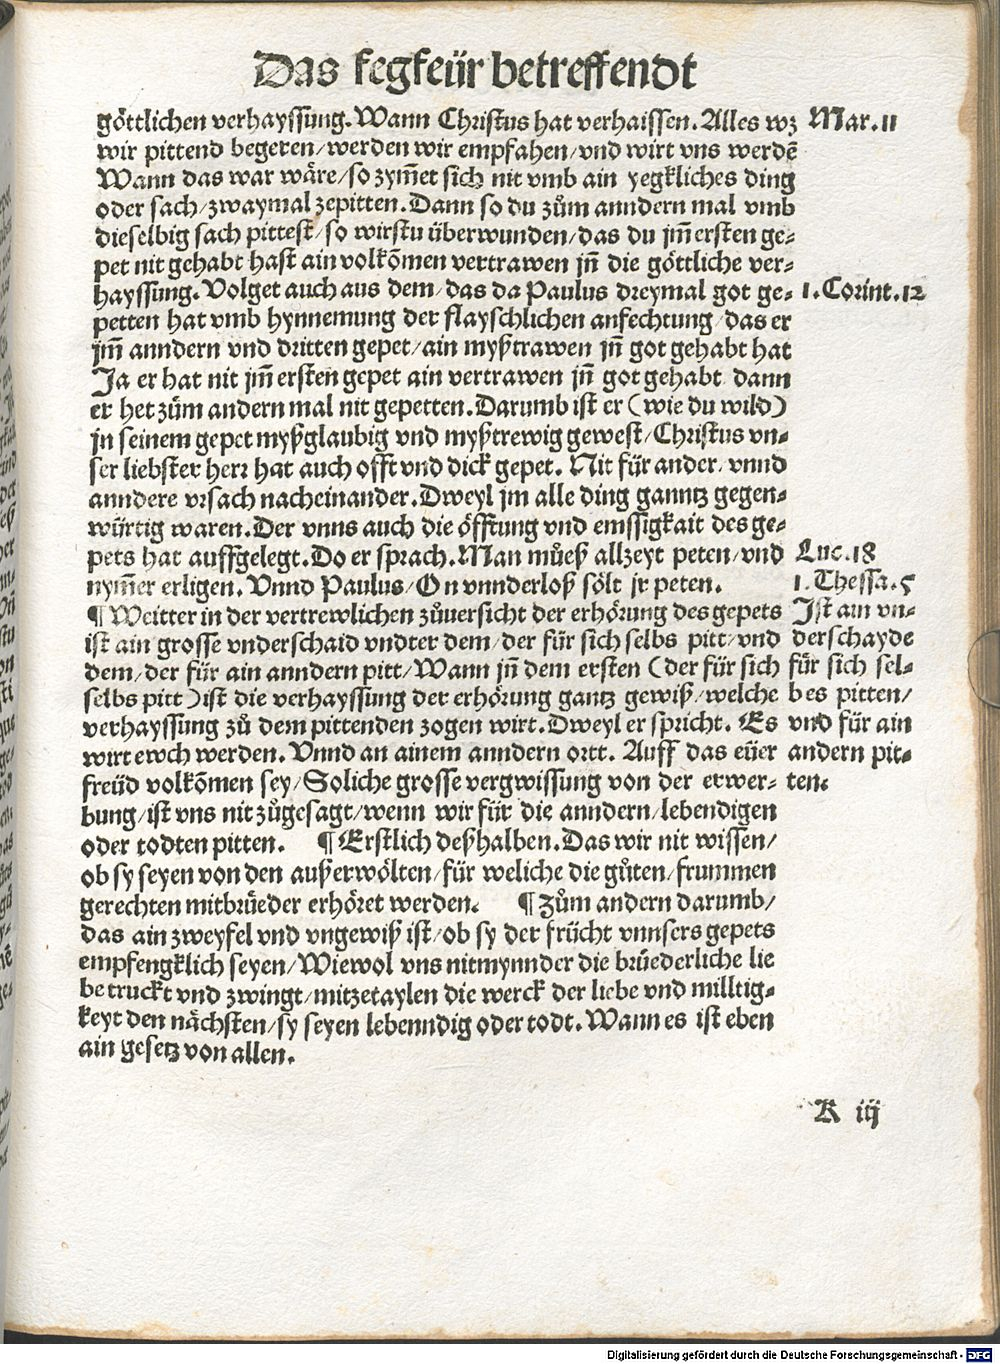 Das fegfeür betreffendt
göttlichen verhayssung. Wann Christus hat verhaissen. Alles wz
Mar. 11
wir pittend begeren/werden wir empfahen/vnd wirt vns werdē
Wann das war wäre/so zym̄et sich nit vmb ain yegkliches ding
oder sach/zwaymal zepitten. Dann so du zům anndern mal vmb
dieselbig sach pittest/so wirstu überwunden/das du jm̄ ersten ge-
pet nit gehabt hast ain volkōmen vertrawen jn̄ die göttliche ver-
hayssung. Volget auch aus dem/das da Paulus dreymal got ge-
1. Corint. 12
petten hat vmb hynnemung der flayschlichen anfechtung/das er
jm̄ anndern vnd dritten gepet/ain myßtrawen jn̄ got gehabt hat
Ja er hat nit jm̄ ersten gepet ain vertrawen jn̄ got gehabt dann
er het zům andern mal nit gepetten. Darumb ist er (wie du wild)
jn seinem gepet myßglaubig vnd myßtrewig gewest/Christus vn-
ser liebster herr hat auch offt vnd dick gepet. Nit für ander/vnnd
anndere vrsach nacheinander. Dweyl jm alle ding ganntz gegen-
würtig waren. Der vnns auch die öfftung vnd emssigkait des ge-
pets hat auffgelegt. Do er sprach. Man můeß allzeyt peten/vnd
Luc. 18
nym̄er erligen. Vnnd Paulus/On vnnderloß sölt jr peten.
1. Thessa. 5
¶ Weitter in der vertrewlichen zůuersicht der erhörung des gepets
ist ain grosse vnderschaid vndter dem/der für sich selbs pitt/vnd
dem/der für ain anndern pitt/Wann jn̄ dem ersten (der für sich
selbs pitt) ist die verhayssung der erhörung gantz gewiß/welche
verhayssung zů dem pittenden zogen wirt. Dweyl er spricht. Es
wirt ewch werden. Vnnd an ainem anndern ortt. Auff das eüer
freüd volkōmen sey/Soliche grosse vergwissung von der erwer-
Ist ain vn-
derschayde
für sich sel-
bes pitten/
vnd für ain
andern pit-
ten.
bung/ist vns nit zůgesagt/wenn wir für die anndern/lebendigen
oder todten pitten. ¶ Erstlich deßhalben. Das wir nit wissen/
ob sy seyen von den außerwölten/für weliche die gůten/frummen
gerechten mitbrüeder erhöret werden. ¶ Zům andern darumb/
das ain zweyfel vnd vngewiß ist/ob sy der frücht vnnsers gepets
empfengklich seyen/Wiewol vns nitmynnder die brüederliche lie
be truckt vnd zwingt/mitzetaylen die werck der liebe vnd milltig-
keyt den nächsten/sy seyen lebenndig oder todt. Wann es ist eben
ain gesetz von allen.
K iij
Digitalisierung gefördert durch die Deutsche Forschungsgemeinschaft - DFG